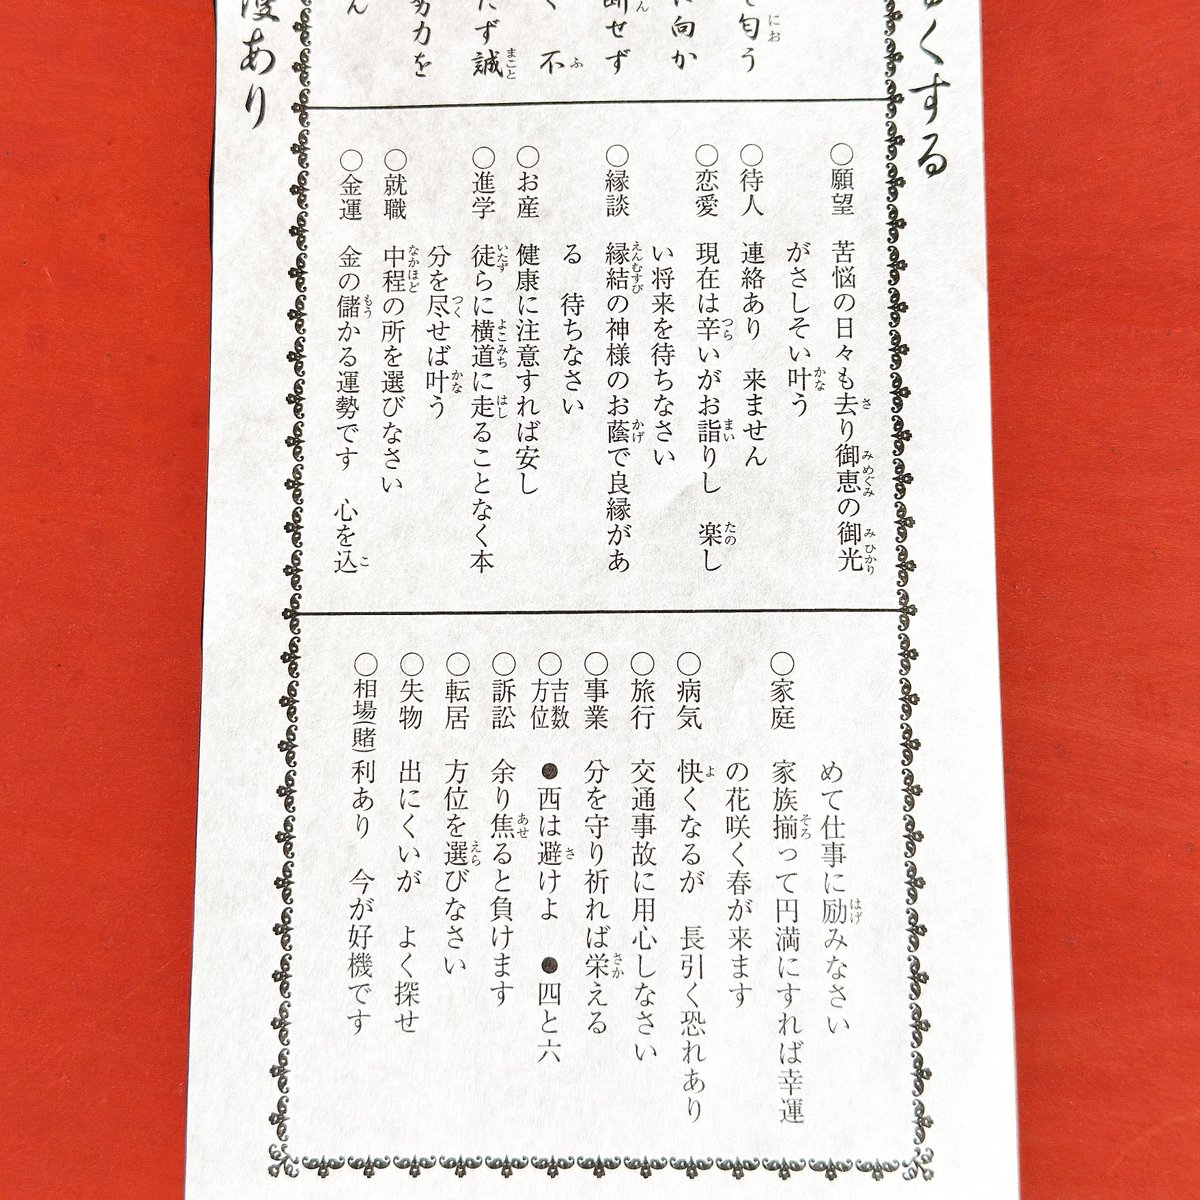 くする
匂う
に向か
断せず
不
たず誠
努力を
ん
あり
○願望 苦悩の日々も去り御恵の御光
がさしそい叶う
○待人 連絡あり 来ません
○恋愛 現在は辛いがお詣りし 楽し
い将来を待ちなさい
○縁談 縁結の神様のお蔭で良縁があ
る 待ちなさい
○お産 健康に注意すれば安し
○進学 徒らに横道に走ることなく本
分を尽せば叶う
○就職 中程の所を選びなさい
○金運 金の儲かる運勢です 心を込
めて仕事に励みなさい
○家庭 家族揃って円満にすれば幸運
の花咲く春が来ます
○病気 快くなるが 長引く恐れあり
○旅行 交通事故に用心しなさい
○事業 分を守り祈れば栄える
○吉数方位 ●西は避けよ ●四と六
○訴訟 余り焦ると負けます
○転居 方位を選びなさい
○失物 出にくいが よく探せ
○相場(賭) 利あり 今が好機です